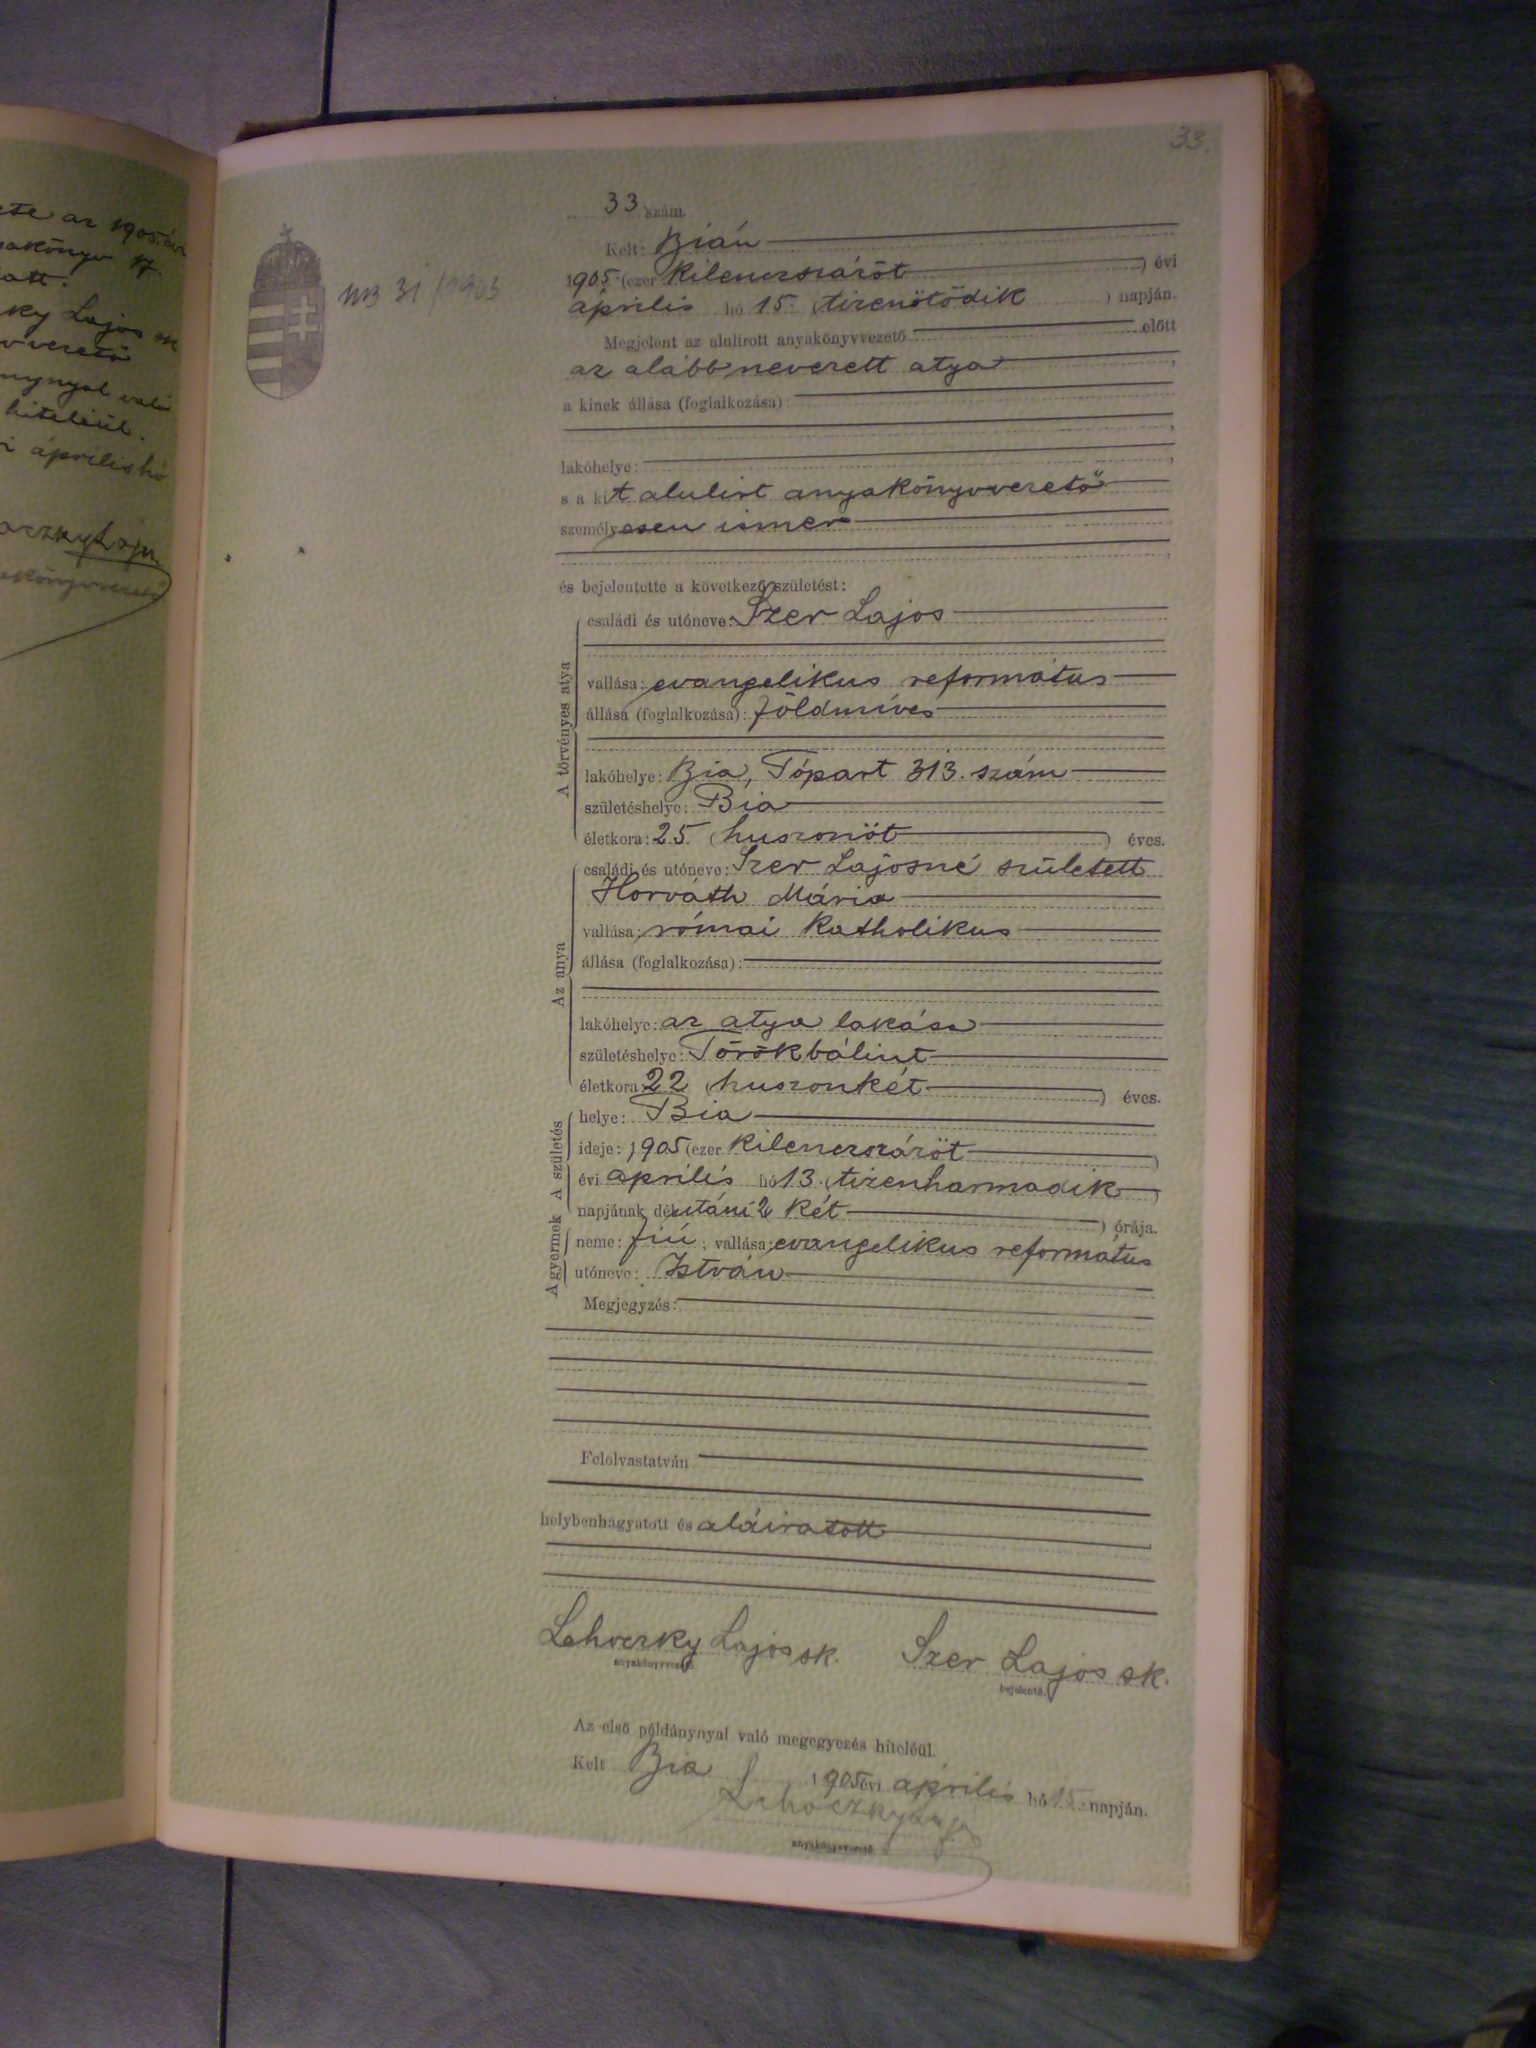 33.
33 szám.
Kelt: Bián
1905. (ezer kilenczszázöt ) évi
április hó 15. (tizenötödik ) napján.
Megjelent az alulirott anyakönyvvezető előtt
az alább nevezett atya ,
a kinek állása (foglalkozása):
,
lakóhelye: ,
s a kit alulirt anyakönyvvezető
személyesen ismer
,
és bejelentette a következő születést:
A törvényes atya
családi és utóneve: Szer Lajos
vallása: evangelikus református
állása (foglalkozása): földmíves
lakóhelye: Bia, Tópart 313. szám
születéshelye: Bia
életkora: 25 (huszonöt ) éves.
Az anya
családi és utóneve: Szer Lajosné született
Horváth Mária
vallása: római katholikus
állása (foglalkozása):
lakóhelye: az atya lakása
születéshelye: Törökbálint
életkora: 22 (huszonkét ) éves.
A születés
helye: Bia
ideje: 1905 (ezer kilenczszázöt )
évi április hó 13. (tizenharmadik )
napjának délutáni 2 (két ) órája.
A gyermek
neme: fiú ; vallása: evangelikus református
utóneve: István
Megjegyzés:
Felolvastatván
helybenhagyatott és aláíratott
Lehoczky Lajos sk. Szer Lajos sk.
anyakönyvvezető. bejelentő.
Az első példánynyal való megegyezés hiteléül.
Kelt Bia 1905 évi április hó 15. napján.
Lehoczky Lajos
anyakönyvvezető
MB 31/1903
az 1905. évi
17.
att.
ky Lajos
vvezető
nynyal való
hiteléül.
április hó